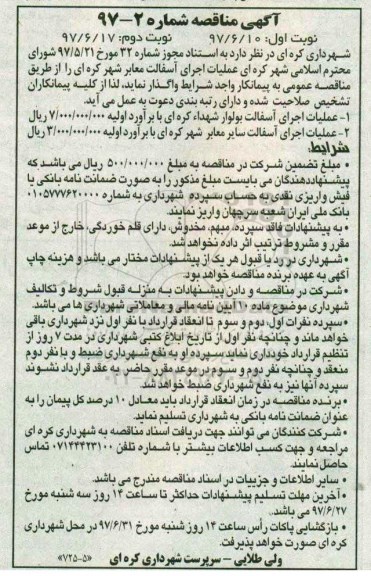 آگهی مناقصه شماره ۲-۹۷
نوبت اول: ۹۷/۶/۱۰ نوبت دوم: ۹۷/۶/۱۷
شهرداری کره ای در نظر دارد به استناد مجوز شماره ۳۲ مورخ ۹۷/۵/۲۱ شورای
محترم اسلامی شهر کره ای عملیات اجرای آسفالت معابر شهر کره ای را از طریق
مناقصه عمومی به پیمانکار واجد شرایط واگذار نماید، لذا از کلیه پیمانکاران
تشخیص صلاحیت شده و دارای رتبه بندی دعوت به عمل می آید.
۱- عملیات اجرای آسفالت بولوار شهداء کره ای با برآورد اولیه ۷/۰۰۰/۰۰۰/۰۰۰ ریال
۲- عملیات اجرای آسفالت سایر معابر شهر کره ای با برآورد اولیه ۳/۰۰۰/۰۰۰/۰۰۰ ریال
شرایط:
• مبلغ تضمین شرکت در مناقصه به مبلغ ۵۰۰/۰۰۰/۰۰۰ ریال می باشد که
پیشنهاددهندگان می بایست مبلغ مذکور را به صورت ضمانت نامه بانکی یا
فیش واریزی نقدی به حساب سپرده شهرداری به شماره ۰۱۰۵۷۷۷۶۲۰۰۰۰
بانک ملی ایران شعبه سرچهان واریز نمایند.
• به پیشنهادات فاقد سپرده، مبهم، مخدوش، دارای قلم خوردگی، خارج از موعد
مقرر و مشروط ترتیب اثر داده نخواهد شد.
• شهرداری در رد یا قبول هر یک از پیشنهادات مختار می باشد و هزینه چاپ
آگهی به عهده برنده مناقصه خواهد بود.
• شرکت در مناقصه و دادن پیشنهادات به منزله قبول شروط و تکالیف
شهرداری موضوع ماده ۱۰ آیین نامه مالی و معاملاتی شهرداری ها می باشد.
• سپرده نفرات اول، دوم و سوم تا انعقاد قرارداد با نفر اول نزد شهرداری باقی
خواهد ماند و چنانچه نفر اول از تاریخ ابلاغ کتبی شهرداری در مدت ۷ روز از
تنظیم قرارداد خودداری نماید سپرده او به نفع شهرداری ضبط و با نفر دوم
منعقد و چنانچه نفر دوم و سوم در موعد مقرر حاضر به عقد قرارداد نشوند
سپرده آنها نیز به نفع شهرداری ضبط خواهد شد.
• برنده مناقصه در زمان انعقاد قرارداد باید معادل ۱۰ درصد کل پیمان را به
عنوان ضمانت نامه بانکی به شهرداری تسلیم نماید.
• شرکت کنندگان می توانند جهت دریافت اسناد مناقصه به شهرداری کره ای
مراجعه و جهت کسب اطلاعات بیشتر با شماره تلفن ۰۷۱۴۴۴۲۳۱۰۰ تماس
حاصل نمایند.
• سایر اطلاعات و جزییات در اسناد مناقصه مندرج می باشد.
• آخرین مهلت تسلیم پیشنهادات حداکثر تا ساعت ۱۴ روز سه شنبه مورخ
۹۷/۶/۲۷ می باشد.
• بازگشایی پاکات رأس ساعت ۱۴ روز شنبه مورخ ۹۷/۶/۳۱ در محل شهرداری
کره ای صورت خواهد پذیرفت.
ولی طلایی - سرپرست شهرداری کره ای
«۷۲۵-۵»